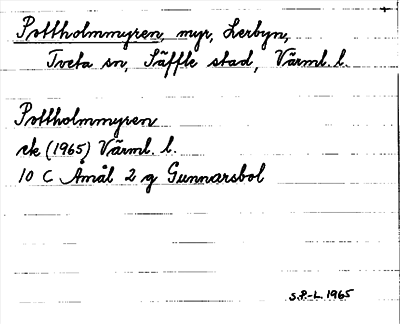 Pottholmmyren, myr, Lerbyn,
Tveta sn, Säffle stad, Värml. l.
Pottholmmyren
ek (1965) Värml. l.
10 C Åmål 2 g Gunnarsbol
S.P.-L. 1965